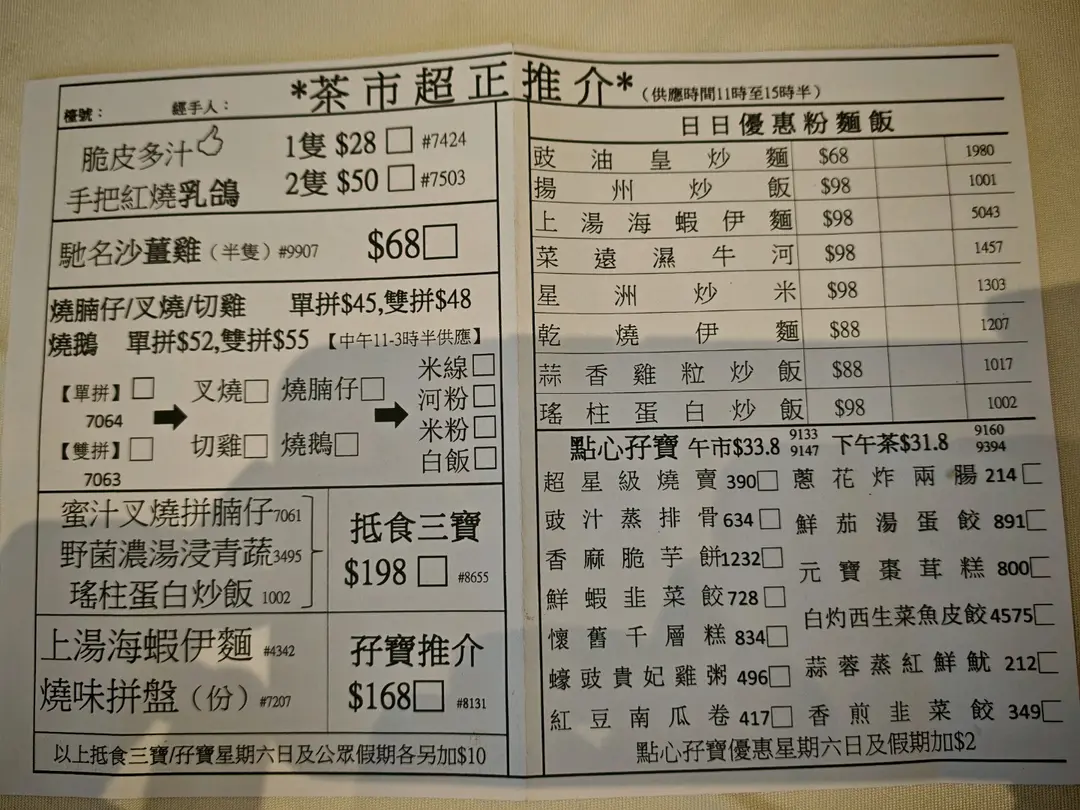 檯號：
經手人：
*茶市超正推介*（供應時間11時至15時半）
脆皮多汁 1隻 $28 #7424
手把紅燒乳鴿 2隻 $50 #7503
馳名沙薑雞（半隻）#9907 $68
燒腩仔/叉燒/切雞 單拼$45,雙拼$48
燒鵝 單拼$52,雙拼$55【中午11-3時半供應】
【單拼】
7064
【雙拼】
7063
叉燒 燒腩仔
切雞 燒鵝
米線
河粉
米粉
白飯
蜜汁叉燒拼腩仔7061
野菌濃湯浸青蔬3495
瑤柱蛋白炒飯 1002
抵食三寶
$198 #8655
上湯海蝦伊麵 #4342
燒味拼盤（份）#7207
孖寶推介
$168 #8131
以上抵食三寶/孖寶星期六日及公眾假期各另加$10
日日優惠粉麵飯
豉油皇炒麵 $68 1980
揚州炒飯 $98 1001
上湯海蝦伊麵 $98 5043
菜遠濕牛河 $98 1457
星洲炒米 $98 1303
乾燒伊麵 $88 1207
蒜香雞粒炒飯 $88 1017
瑤柱蛋白炒飯 $98 1002
點心孖寶 午市$33.8 9133 9147 下午茶$31.8 9160 9394
超星級燒賣 390 蔥花炸兩腸 214
豉汁蒸排骨 634 鮮茄湯蛋餃 891
香麻脆芋餅1232 元寶棗茸糕 800
鮮蝦韭菜餃 728 白灼西生菜魚皮餃4575
懷舊千層糕 834 蒜蓉蒸紅鮮魷 212
蠔豉貴妃雞粥 496 香煎韭菜餃 349
紅豆南瓜卷 417
點心孖寶優惠星期六日及假期加$2